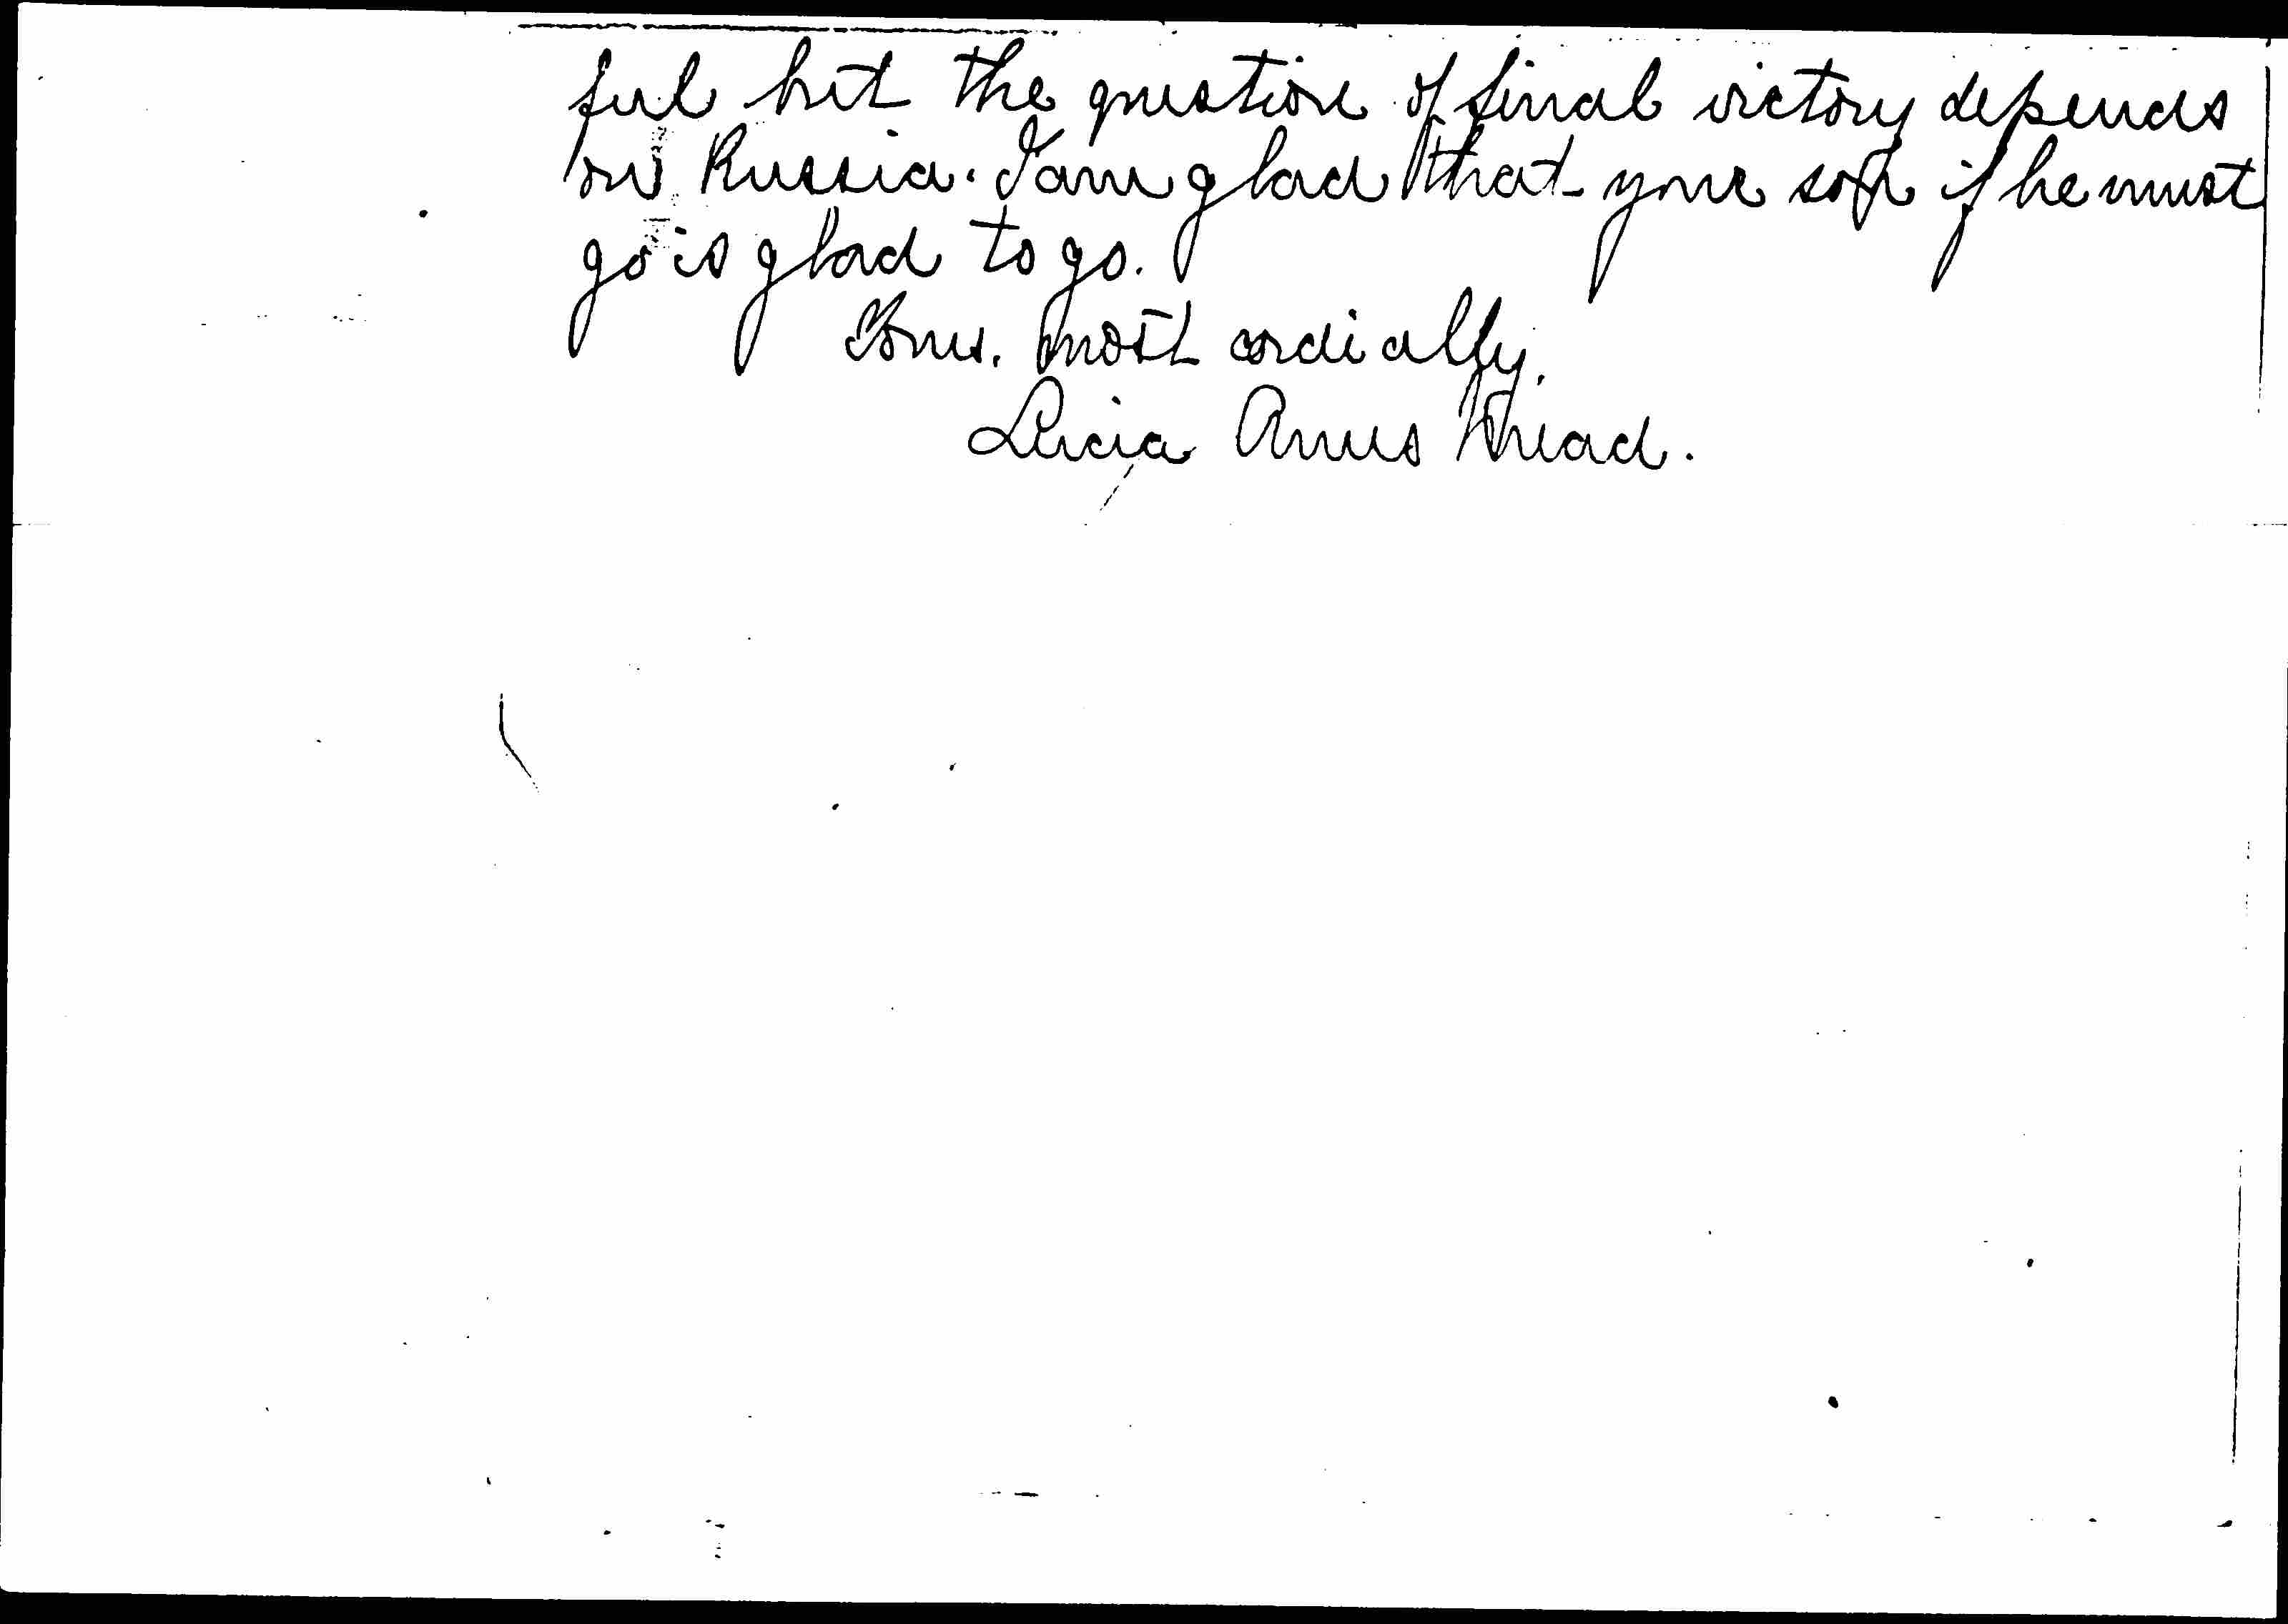 ful but the question of final victory depends
on Russia. I am glad that your son if he must
go is glad to go.
Yours. most cordially,
Lucia Ames Mead.